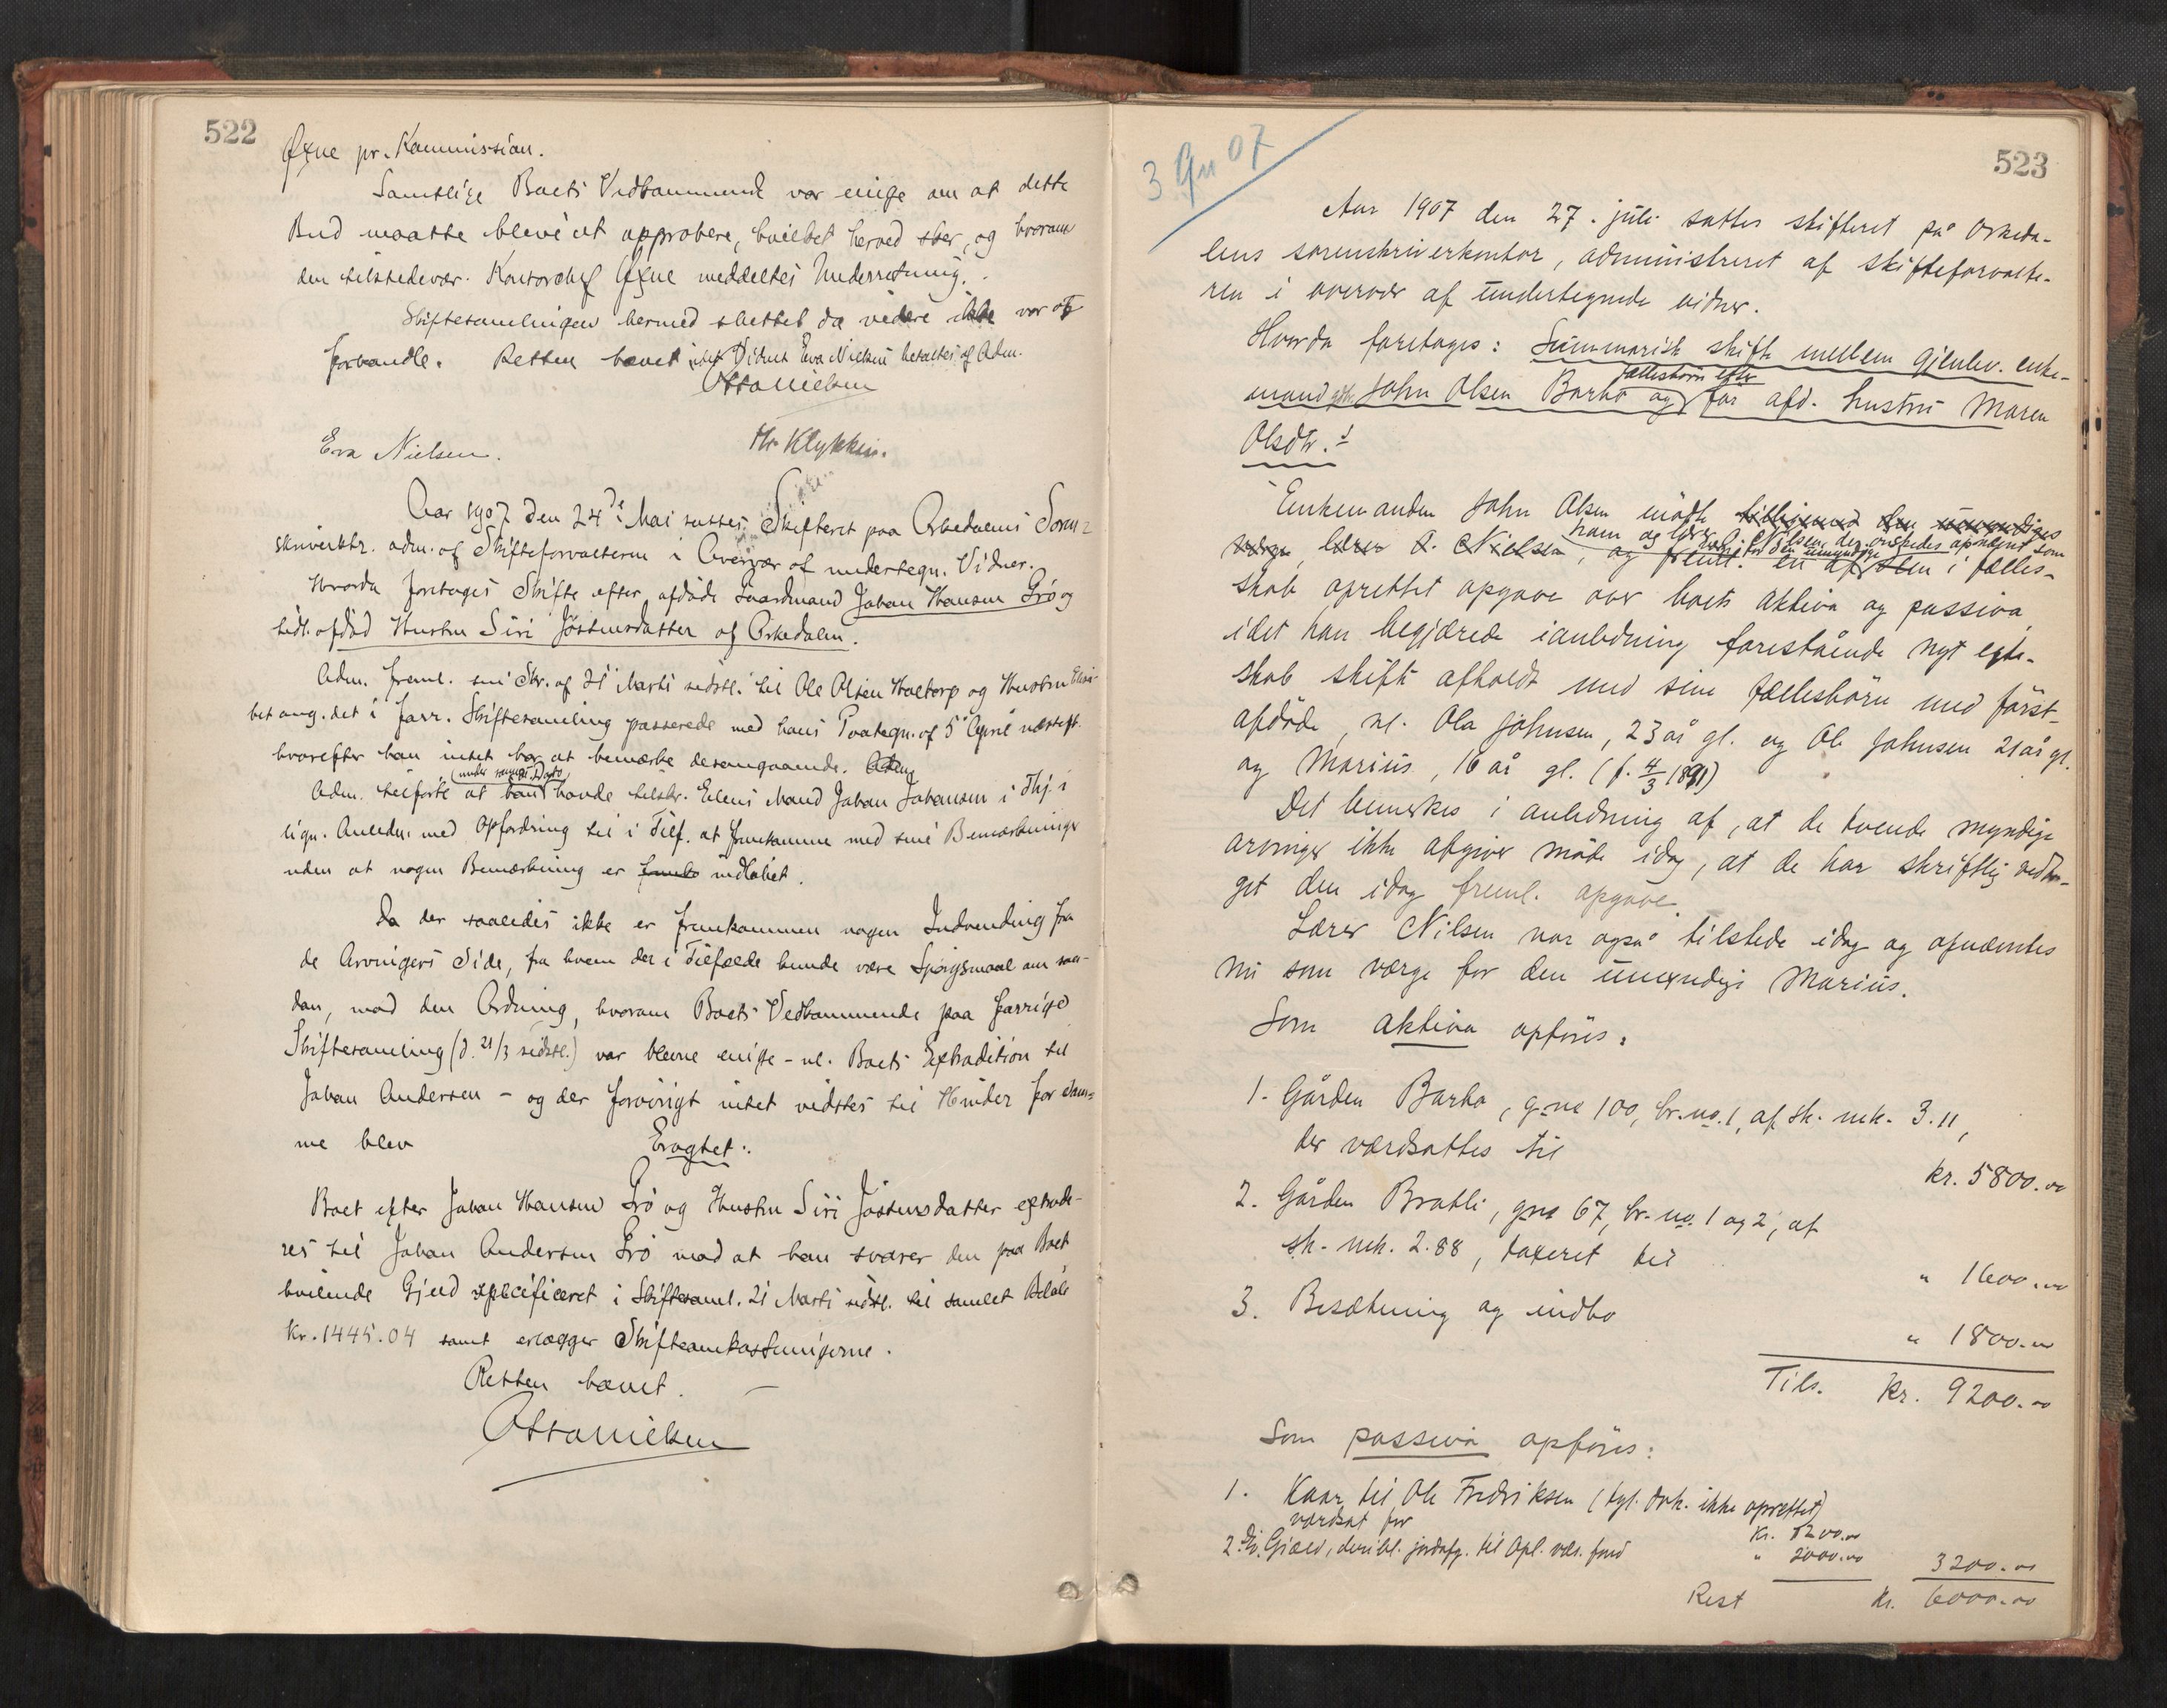 522
Øxne pr. Kommission.
Samtlige Boets Vedkommende var enige om at dette
Bud maatte blive at approbere, hvilket herved sker, og hvorom
den tilstedevær. Kontorchef Øxne meddeltes Underretning.
Skiftesamlingen hermed sluttet da videre ikke var at
forhandle. Retten hævet Vidnet Eva Nielsen betaltes af Adm.
Otto Nielsen
Eva Nielsen. Hr. Klykken.
Aar 1907 den 24de Mai sattes Skifteret paa Orkedalens Soren-
skriverktr. adm. af Skifteforvalteren i Overvær af undertegn. Vidner.
Hvorda foretoges Skifte efter afdøde Gaardmand Johan Hansen Grø og
tidl. afdød Hustru Siri Jostensdatter af Orkedalen.
Adm. freml. sin Skr. af 21 Marts sidstl. til Ole Olsen Holtorp og Hustru Elisa-
bet ang. det i forr. Skiftesamling passerede med hans Paategn. af 5 April næsteft.
hvorefter han intet har at bemærke desangaaende.
Adm. tilførte at han (under samme Dato) havde tilskr. Elens Mand Johan Johansen i Thj. i
lign. Anledn. med Opfordring til i Tilf. at fremkomme med sine Bemærkninger
uden at nogen Bemærkning er indløbet.
Da der saaledes ikke er fremkommen nogen Indvending fra
de Arvingers Side, fra hvem der i Tilfælde kunde være Spørgsmaal om saa-
dan, mod den Ordning, hvorom Boets Vedkommende paa forrige
Skiftesamling (d. 21/3 sidstl.) var blevne enige - nl. Boets Extradition til
Johan Andersen - og der forøvrigt intet vidstes til Hinder for sam-
me blev Eragtet:
Boet efter Johan Hansen Grø og Hustru Siri Jostensdatter extrade-
res til Johan Andersen Grø mod at han svarer den paa Boet
hvilende Gjæld specificeret i Skiftesaml. 21 Marts sidstl. til samlet Beløb
Kr. 1445.04 samt erlægger Skifteomkostningerne.
Retten hævet.
Otto Nielsen
523
3 Gn 07
Aar 1907 den 27. juli sattes skifteret på Orkeda-
lens sorenskriverkontor, administreret af skifteforvalte-
ren i overvær af undertegnede vidner.
Hvorda foretoges: Summarisk skifte mellem gjenlev. enke-
mand John Olsen Barbo og fællesbørn efter før afd. hustru Maren
Olsdtr.:
Enkemanden John Olsen mødte tilligemed den umyndiges
værge, lærer O. Nielsen, og freml. en af ham og lærer O. Nilsen, der ønskedes opnævnt som værge for den umyndige i fælles-
skab oprettet opgave over boets aktiva og passiva,
idet han begjærede i anledning forestående nyt egte-
skab skifte afholdt med sine fællesbørn med først-
afdøde, nl. Ola Johnsen, 23 år gl. og Ole Johnsen 21 år gl.
og Marius, 16 år gl. (f. 4/3 1891)
Det bemerkes i anledning af, at de tvende myndige
arvinger ikke afgiver møde idag, at de har skriftlig vedta-
get den idag freml. opgave.
Lærer Nilsen var også tilstede idag og opnævntes
nu som værge for den umyndige Marius.
Som aktiva opføres:
1. Gården Barbo, g.no 100, br.no. 1, af sk. mk. 3.11,
der værdsattes til kr. 5800.00
2. Gården Bratli, g.no 67, br.no. 1 og 2, af
sk. mk. 2.88, taxeret til " 1600.00
3. Besætning og indbo " 1800.00
Tils. Kr. 9200.00
Som passiva opføres:
1. Kaar til Ole Fredriksen (tgl. dok. ikke oprettet)
værdsat for Kr. 1200.00
2. Div. Gjæld, deribl. jordafg. til Opl. væs. fond " 2000.00 3200.00
Rest Kr. 6000.00